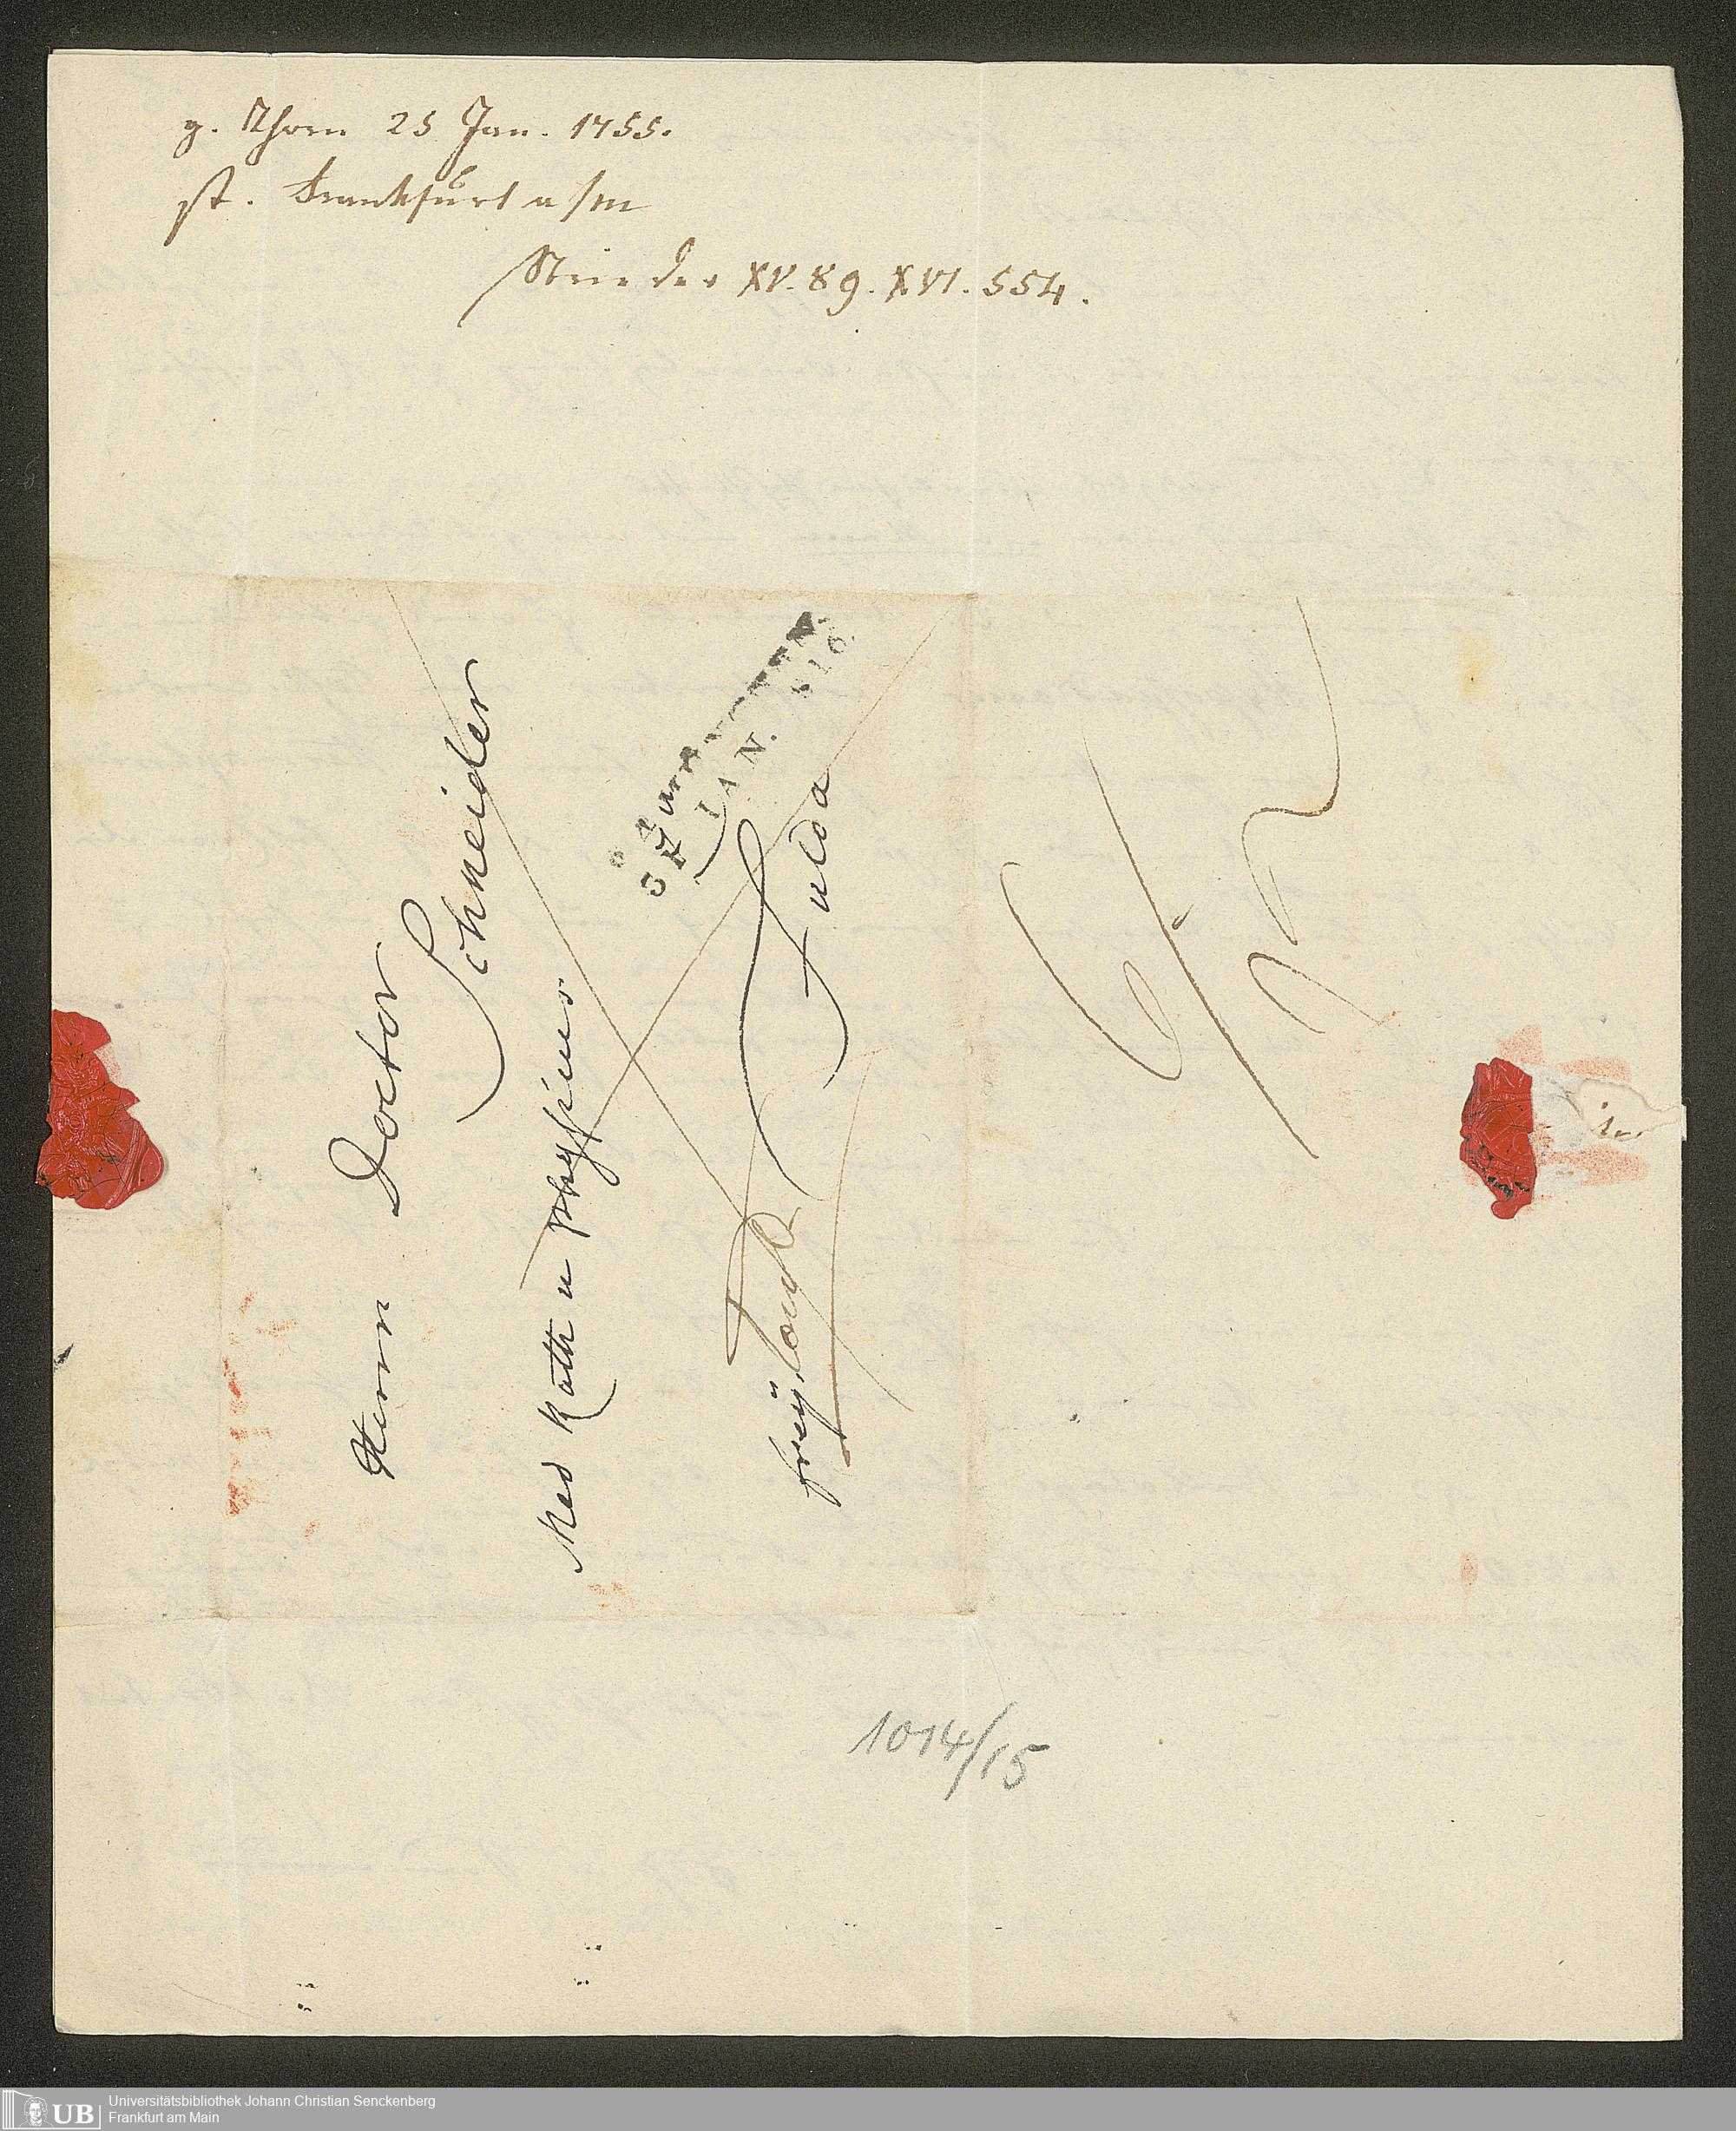 g. Thorn 25 Jan. 1755.
st. Frankfurt a/m
Strieder XV. 89. XVI. 554.
Herrn Doctor
Schneider
Med Rath u physicus
Fulda
frey
JAN.
1014/15
UB
Universitätsbibliothek Johann Christian Senckenberg
Frankfurt am Main